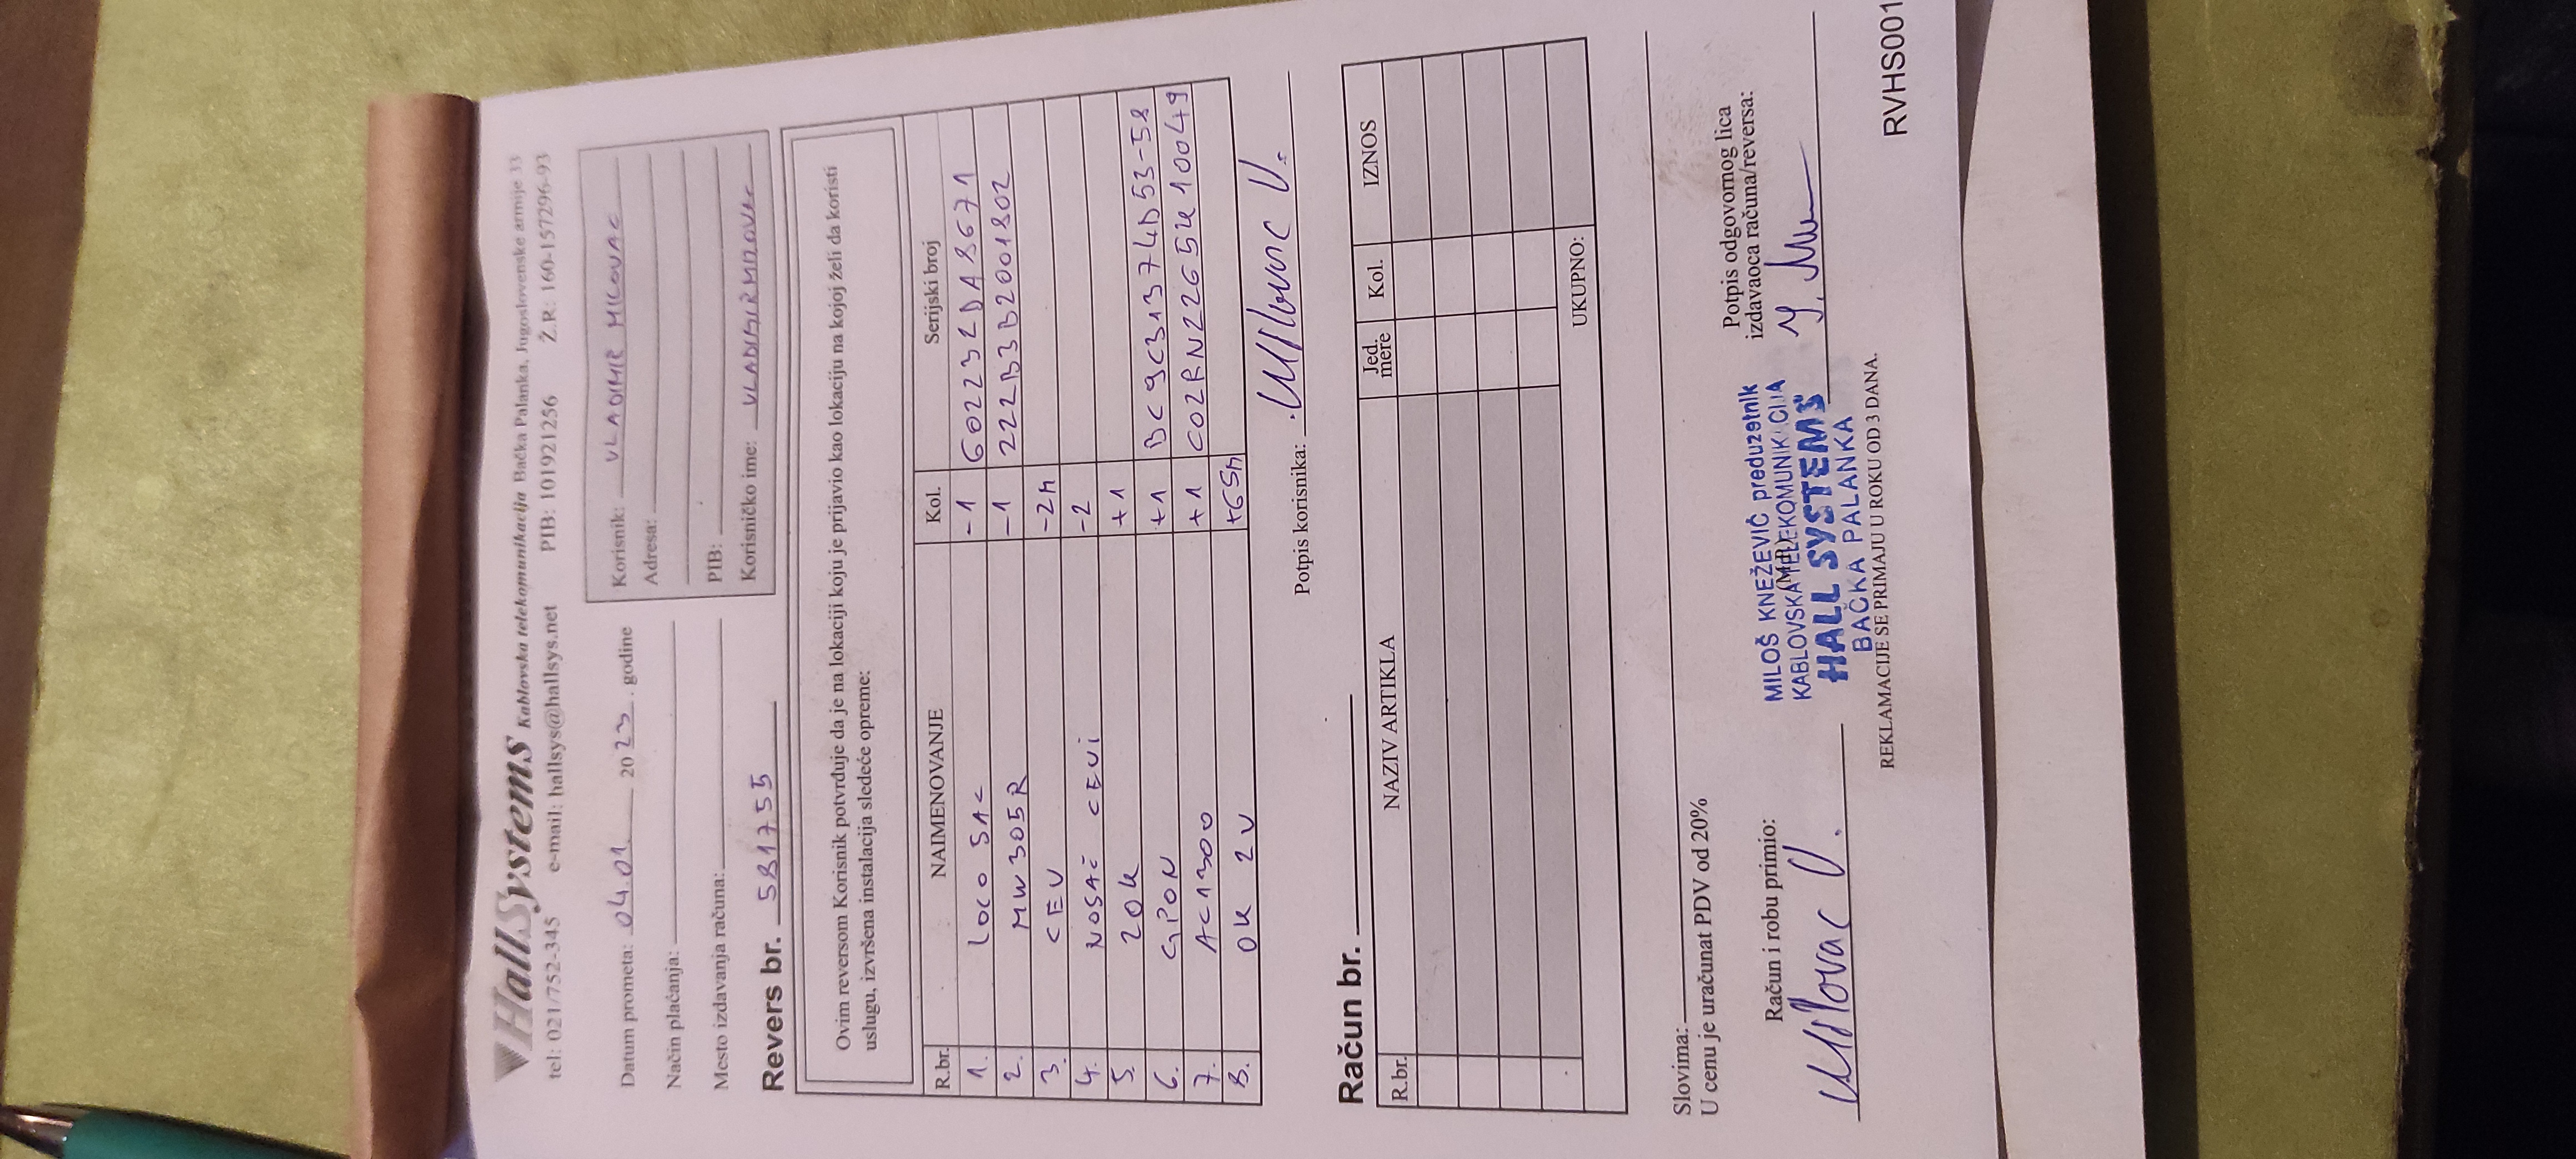 HallSystems Kablovska telekomunikacija Bačka Palanka, Jugoslovenske armije 33
tel: 021/752-345 e-mail: hallsys@hallsys.net PIB: 101921256 Ž.R: 160-157296-93
Datum prometa: 04.01 2023. godine
Način plaćanja:
Mesto izdavanja računa:
Korisnik: VLADIMIR MILOVAC
Adresa:
PIB:
Korisničko ime: VLADIMIRMILOVAC
Revers br. 581755
Ovim reversom Korisnik potvrđuje da je na lokaciji koju je prijavio kao lokaciju na kojoj želi da koristi
uslugu, izvršena instalacija sledeće opreme:
R.br. NAIMENOVANJE Kol. Serijski broj
1. LOCO 5AC -1 602232DA8671
2. MW305R -1 222B3B2001802
3. CEV -2m
4. NOSAČ CEVI -2
5. ZOK +1
6. GPON +1 BC9C31374D53-58
7. AC1300 +1
8. OK 2V +65m
Potpis korisnika: Milovac V.
Račun br.
R.br. NAZIV ARTIKLA Jed. mere Kol. IZNOS
UKUPNO:
Slovima:
U cenu je uračunat PDV od 20%
Račun i robu primio:
Milovac V.
(M.P.)
MILOŠ KNEŽEVIĆ preduzetnik
KABLOVSKA TELEKOMUNIKACIJA
HALL SYSTEMS
BAČKA PALANKA
Potpis odgovornog lica
izdavaoca računa/reversa:
REKLAMACIJE SE PRIMAJU U ROKU OD 3 DANA.
RVHS001